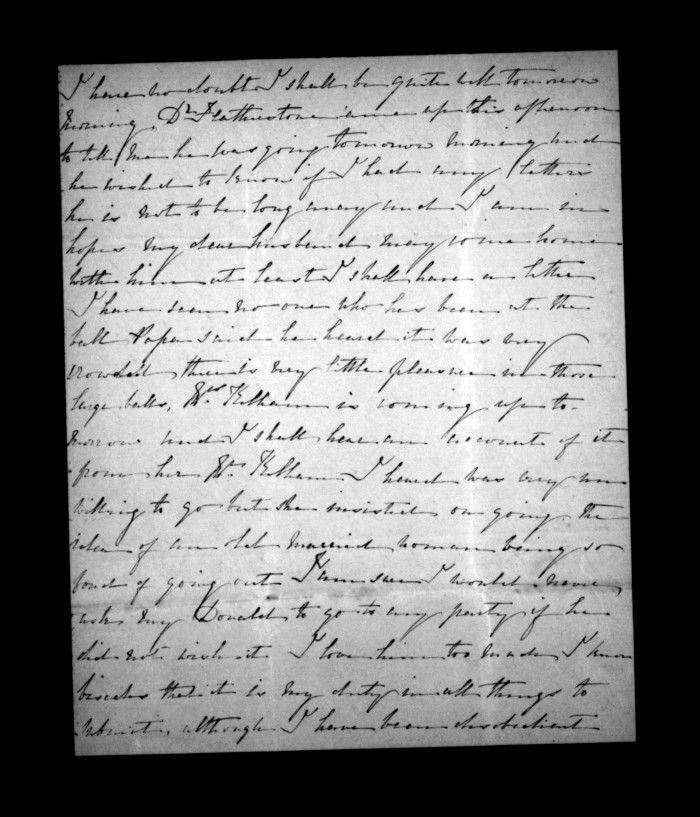 I have no doubt I shall be quite well tomorrow
morning, Dr. Featherstone came up this afternoon
to tell me he was going tomorrow morning and
he wished to know if I had any letters
he is not to be long away and I am in
hopes my dear husband may come home
with him at least I shall have a letter
I have seen no one who has been at the
ball Papa said he heard it was very
crowded there is very little pleasure in those
large balls, Mrs. Kelham is coming up to-
morrow and I shall hear an account of it
from her Mr. Kelham I heard was very un
willing to go but she insisted on going the
idea of an old married woman being so
fond of going out I am sure I would never
ask my Donald to go to any party if he
did not wish it I love him too much, I know
besides that it is my duty in all things to
submit, although I have been disobedient